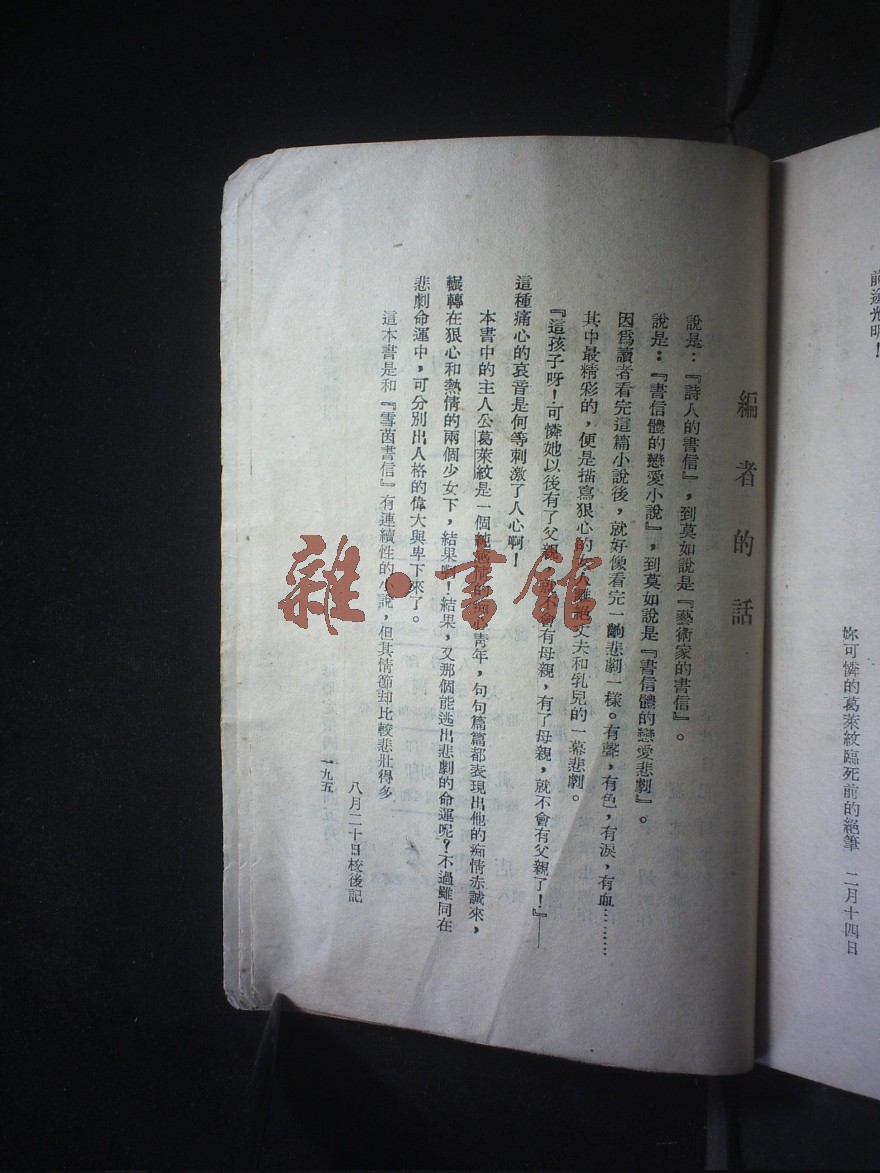 前途光明！
妳可憐的葛萊紋臨死前的絕筆　二月十四日
編者的話
說是：『詩人的書信』，到莫如說是『藝術家的書信』。
說是：『書信體的戀愛小說』，到莫如說是『書信體的戀愛悲劇』。
因爲讀者看完這篇小說後，就好像看完一齣悲劇一樣。有聲，有色，有淚，有血………
其中最精彩的，便是描寫狠心的女人離絕丈夫和乳兒的一幕悲劇。
『這孩子呀！可憐她以後有了父親，就不會有母親，有了母親，就不會有父親了！』——
這種痛心的哀音是何等刺激了人心啊！
本書中的主人公葛萊紋是一個純的痴心青年，句句篇篇都表現出他的痴情赤誠來，
輾轉在狠心和熱情的兩個少女下，結果啊！結果，又那個能逃出悲劇的命運呢？不過雖同在
悲劇命運中，可分別出人格的偉大與卑下來了。
這本書是和『雪茵書信』有連續性的小說，但其情節却比較悲壯得多
八月二十日校後記
一九五
雜·書館